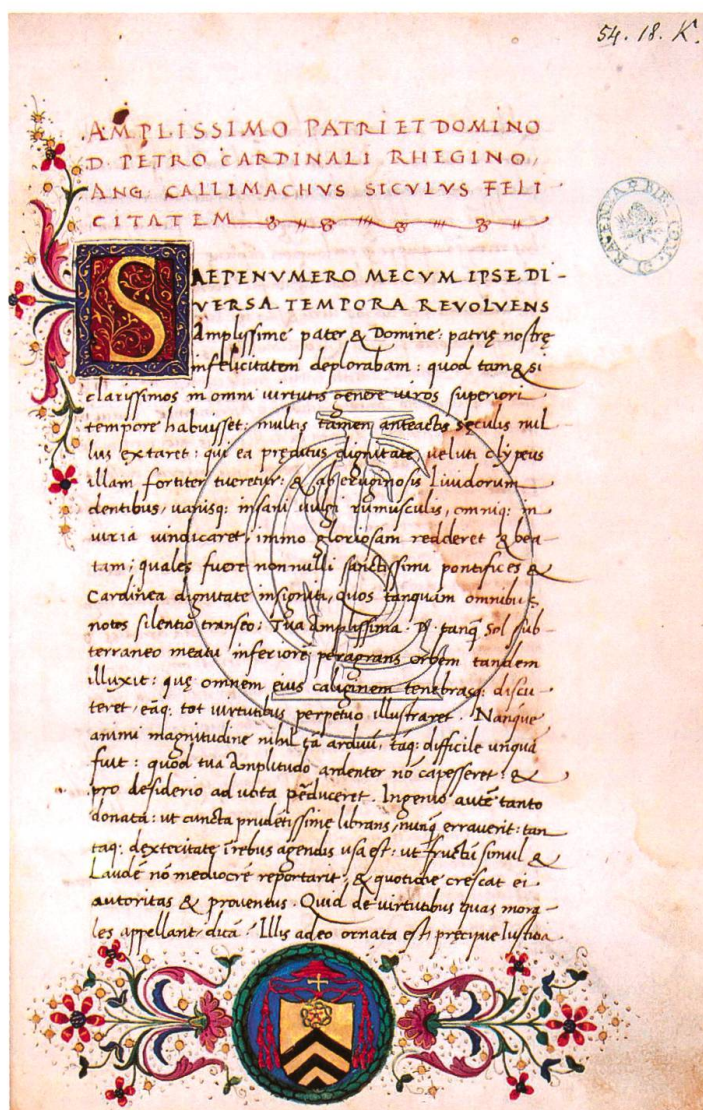 54. 18. K.
AMPLISSIMO PATRI ET DOMINO
D. PETRO CARDINALI RHEGINO,
ANG. CALLIMACHVS SICVLVS FELI
CITATEM
SAEPENVMERO MECVM IPSE DI-
VERSA TEMPORA REVOLVENS
Amplissime pater & Domine: patrię nostrę
infelicitatem deplorabam: quod tam & si
clarissimos in omni virtutis genere viros superiori
tempore habuisset: multis tamen anteactis sęculis nul
lus extaret: qui ea pręditus dignitate veluti clypeus
illam fortiter tueretur: & ab eruginosis Liuidorum
dentibus, uarijsq; insani uulgi rumusculis, omniq; in
iuria vindicaret, immo gloriosam redderet & bea
tam; quales fuere nonnulli sanctissimi pontifices &
Cardinea dignitate insigniti, quos tanquam omnibus
notos silentio transeo: Tua Amplissima. D. tanq̃ Sol sub-
terraneo meatu inferiorẽ peragrans orbem tandem
illuxit: quę omnem eius caliginem tenebrasq; discu-
teret, eãq; tot uirtutibus perpetuo illustraret. Nanque
animi magnitudine nihil tã arduũ, tãq; difficile unquã
fuit: quod tua Amplitudo ardenter nõ capesseret: &
pro desiderio ad uota pẽduceret. Ingenio autẽ tanto
donata: ut cuncta prudẽtissime librans, nunq̃ errauerit: tan
taq; dexteritate ĩ rebus agendis usa est: ut fructũ simul &
Laudẽ nõ mediocrẽ reportarit, & quotidie crescat ei
autoritas & prouentus. Quid de uirtutibus quas mora-
les appellant, dicã? Illis adeo ornata est, pręcipue Iustitia